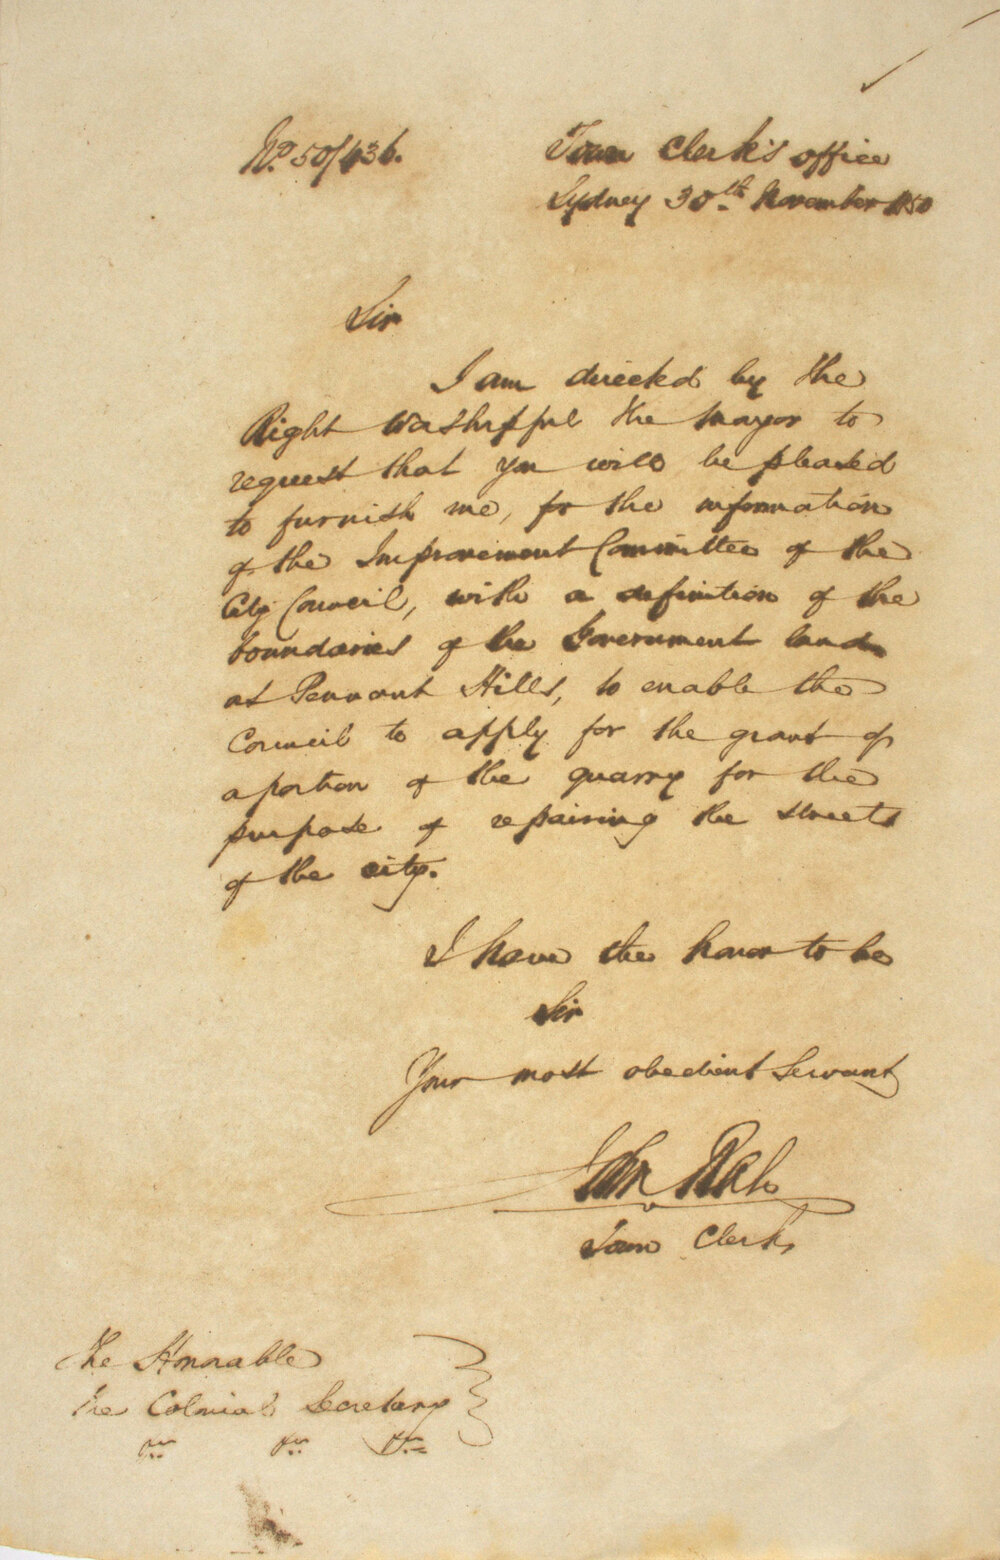 No. 50/436.
Town Clerk's office
Sydney 30th November 1850
Sir
I am directed by the
Right Worshipful the Mayor to
request that you will be pleased
to furnish me, for the information
of the Improvement Committee of the
City Council, with a definition of the
boundaries of the Government land
at Pennant Hills, to enable the
Council to apply for the grant of
a portion of the quarry for the
purpose of repairing the streets
of the city.
I have the honor to be
Sir
Your most obedient Servant
John Rae
Town Clerk
The Honorable
The Colonial Secretary